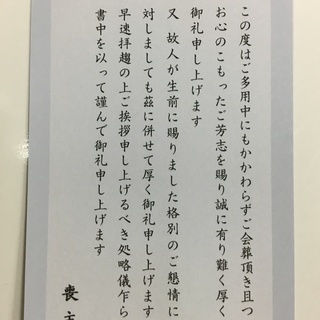 この度はご多用中にもかかわらずご会葬頂き且つ
お心のこもったご芳志を賜り誠に有り難く厚く
御礼申し上げます
又 故人が生前に賜りました格別のご懇情に
対しましても茲に併せて厚く御礼申し上げます
早速拝趨の上ご挨拶申し上げるべき処略儀乍ら
書中を以って謹んで御礼申し上げます
喪